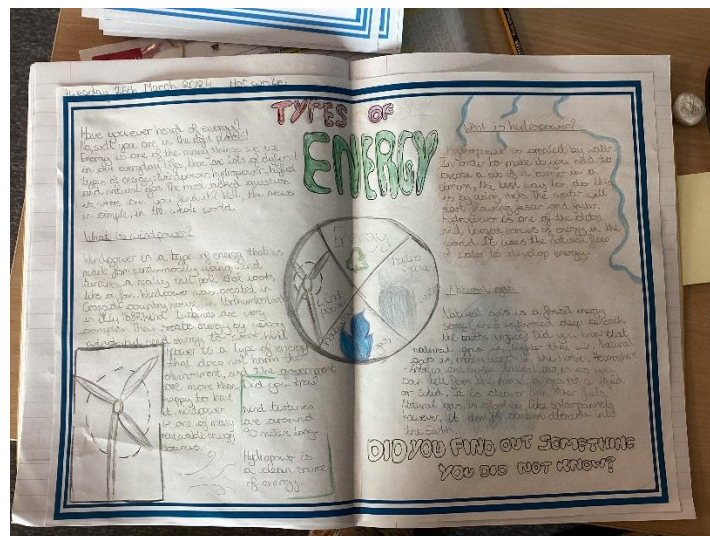 Tuesday 26th March 2024 Hot write.
TYPES OF
ENERGY
Have you ever heard of energy?
No, well you are in the right place!
Energy is one of the many things we use
in our everyday life. There are lots of different
types of energy: windpower, hydropower,
and natural gas. The most asked question
is where can you find it? Well, the answer
is simple, in the whole world.
What is windpower?
Windpower is a type of energy that is
made using wind
turbines, a really tall pole that looks
like a fan. Windpower was created in
Cragside country house, in Northumberland
in July 1887. Wind turbines are very
complex. They create energy by
wind and energy to
power is a type of energy
that does not harm the
environment, and the government
are more than
happy to have
it. windpower
is one of many
renewable energy
sources.
Did you know
wind turbines
are around
meters long.
Hydropower is
a clean source
of energy.
Energy
hydro
power
wind
power
natural
gas
What is hydropower?
Hydropower is created by water.
In order to make it you need to
create a bit of a in a
stream, the best way to do this
is by using The water will
start flowing faster and faster.
Hydropower is one of the oldest
and largest sources of energy in the
world. It uses the natural flow
of water to develop energy.
Natural gas
Natural gas is a fossil energy
source that is formed deep beneath
the earth's Did you know that
natural gas is lighter than air. Natural
gas is mainly used in the home,
Natural gas is as you
can tell from the name, a gas not a liquid
or solid, it is cleaner than other fuels.
Natural gas is not like solar panels
however, it emits carbon dioxide into
the Earth.
DID YOU FIND OUT SOMETHING
YOU DID NOT KNOW?